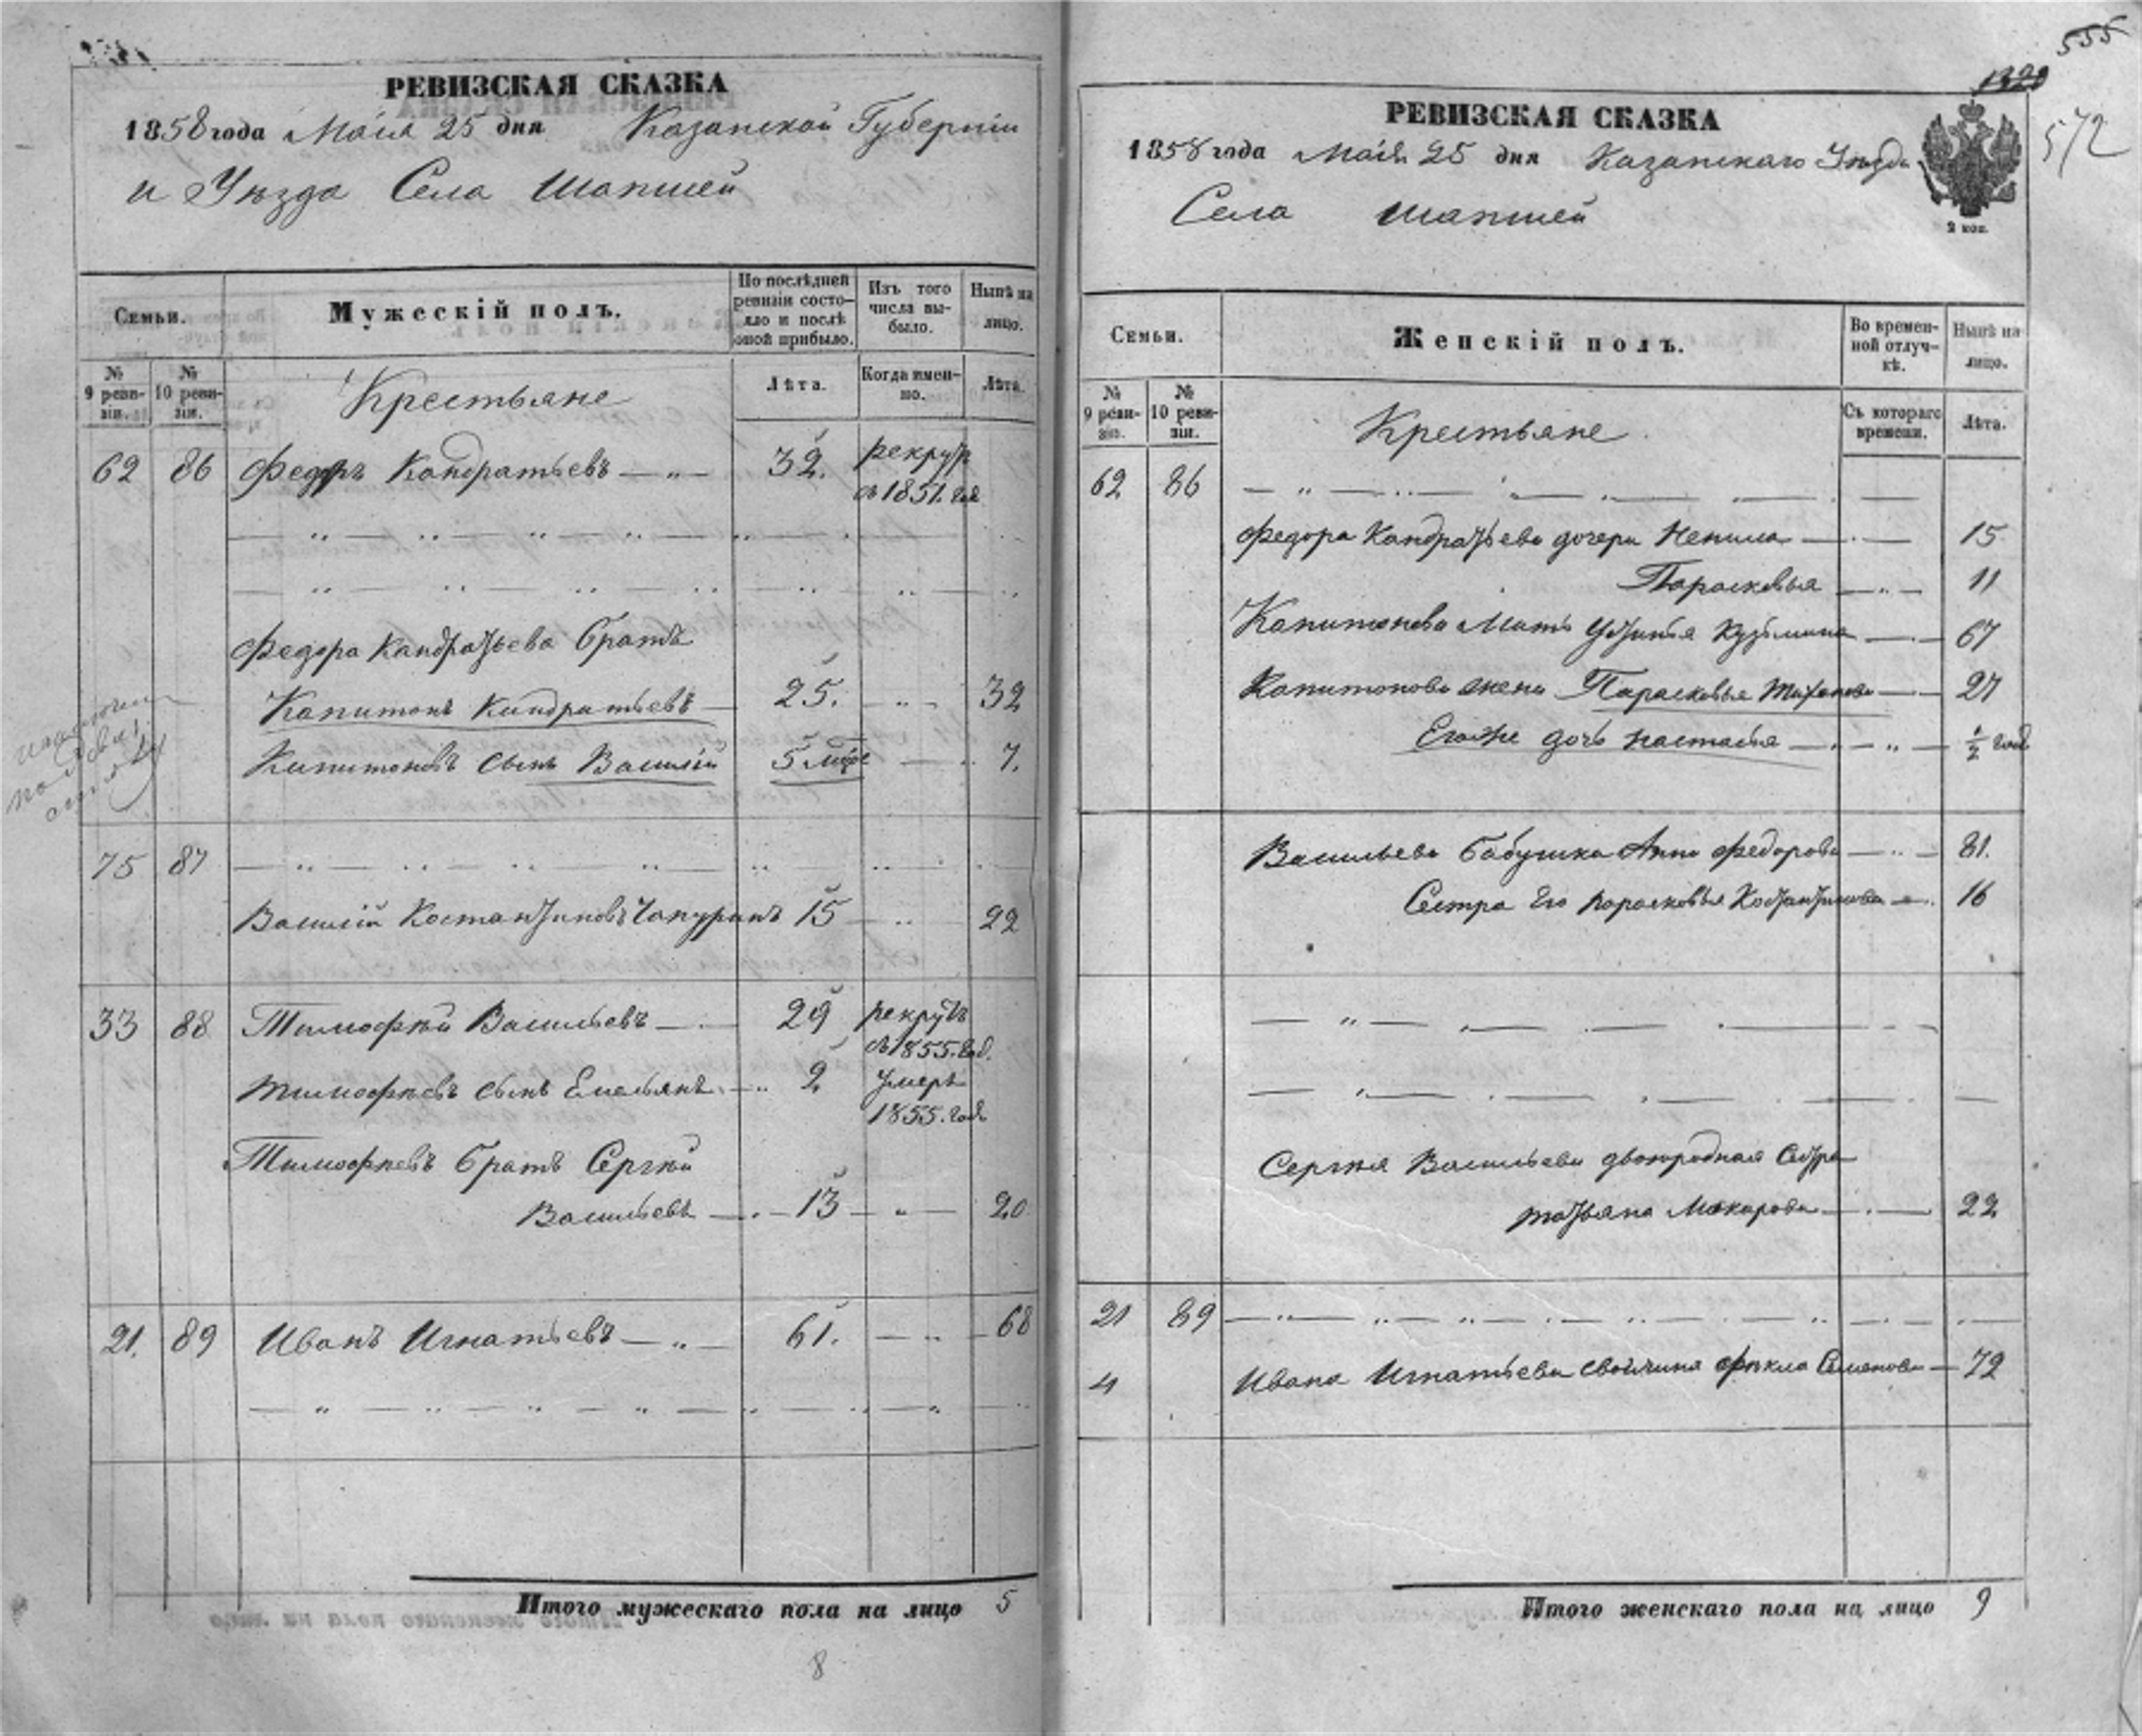 РЕВИЗСКАЯ СКАЗКА
1858 года Маія 25 дня Казанской Губерніи
и Уѣзда Села Шапшей
Семьи.
Мужескій полъ.
По послѣдней ревизіи состояло и послѣ оной прибыло.
Изъ того числа выбыло.
Нынѣ на лицо.
№ 9 ревизіи.
№ 10 ревизіи.
Крестьяне
Лѣта.
Когда именно.
Лѣта.
62 86 Федоръ Кандратьевъ — „ — 32. рекрут
съ 1851. года
Федора Кандратьева братъ
Капитонъ Кандратьевъ — 25. — „ — 32
Капитоновъ сынъ Василій 5 мѣс — 7.
75 87
Василій Костантиновъ Чапуринъ 15 — „ 22
33 88 Тимофѣй Васильевъ — 29 рекрутъ
съ 1855. год.
Тимофѣевъ сынъ Емельянъ — „ 2 умеръ
1855. года
Тимофѣевъ братъ Сергѣй
Васильевъ — 13 — „ — 20
21. 89 Иванъ Игнатьевъ — „ — 61. — „ — 68
Итого мужескаго пола на лицо 5
8
555
1320
572
РЕВИЗСКАЯ СКАЗКА
1858 года Маія 25 дня Казанскаго Уѣзда
Села Шапшей
2 коп.
Семьи.
Женскій полъ.
Во временной отлучкѣ.
Нынѣ на лицо.
№ 9 ревизіи.
№ 10 ревизіи.
Крестьяне
Съ котораго времени.
Лѣта.
62 86
Федора Кандратьева дочери Ненила — 15
Парасковья — „ — 11
Капитонова Мать Устинья Кузьмина — 67
Капитонова жена Парасковья Тиханова — 27
Егоже дочь Настасья — „ — ½ года
Васильева бабушка Анна Федорова — „ — 81.
Сестра его Парасковья Костантинова — 16
Сергѣя Васильева двоюродная Сестра
Татьяна Макарова — 22
21 89
4 Ивана Игнатьева своячина Фекла Семенова — 72
Итого женскаго пола на лицо 9